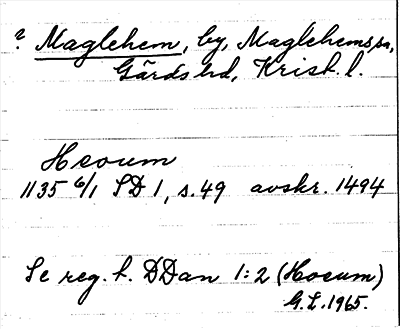 ? Maglehem, by, Maglehems sn,
Gärds hd, Krist. l.
Hooum
1135 6/1 SD 1, s. 49 avskr. 1494
Se reg. t. DDan 1:2 (Hooum)
G.L. 1965.